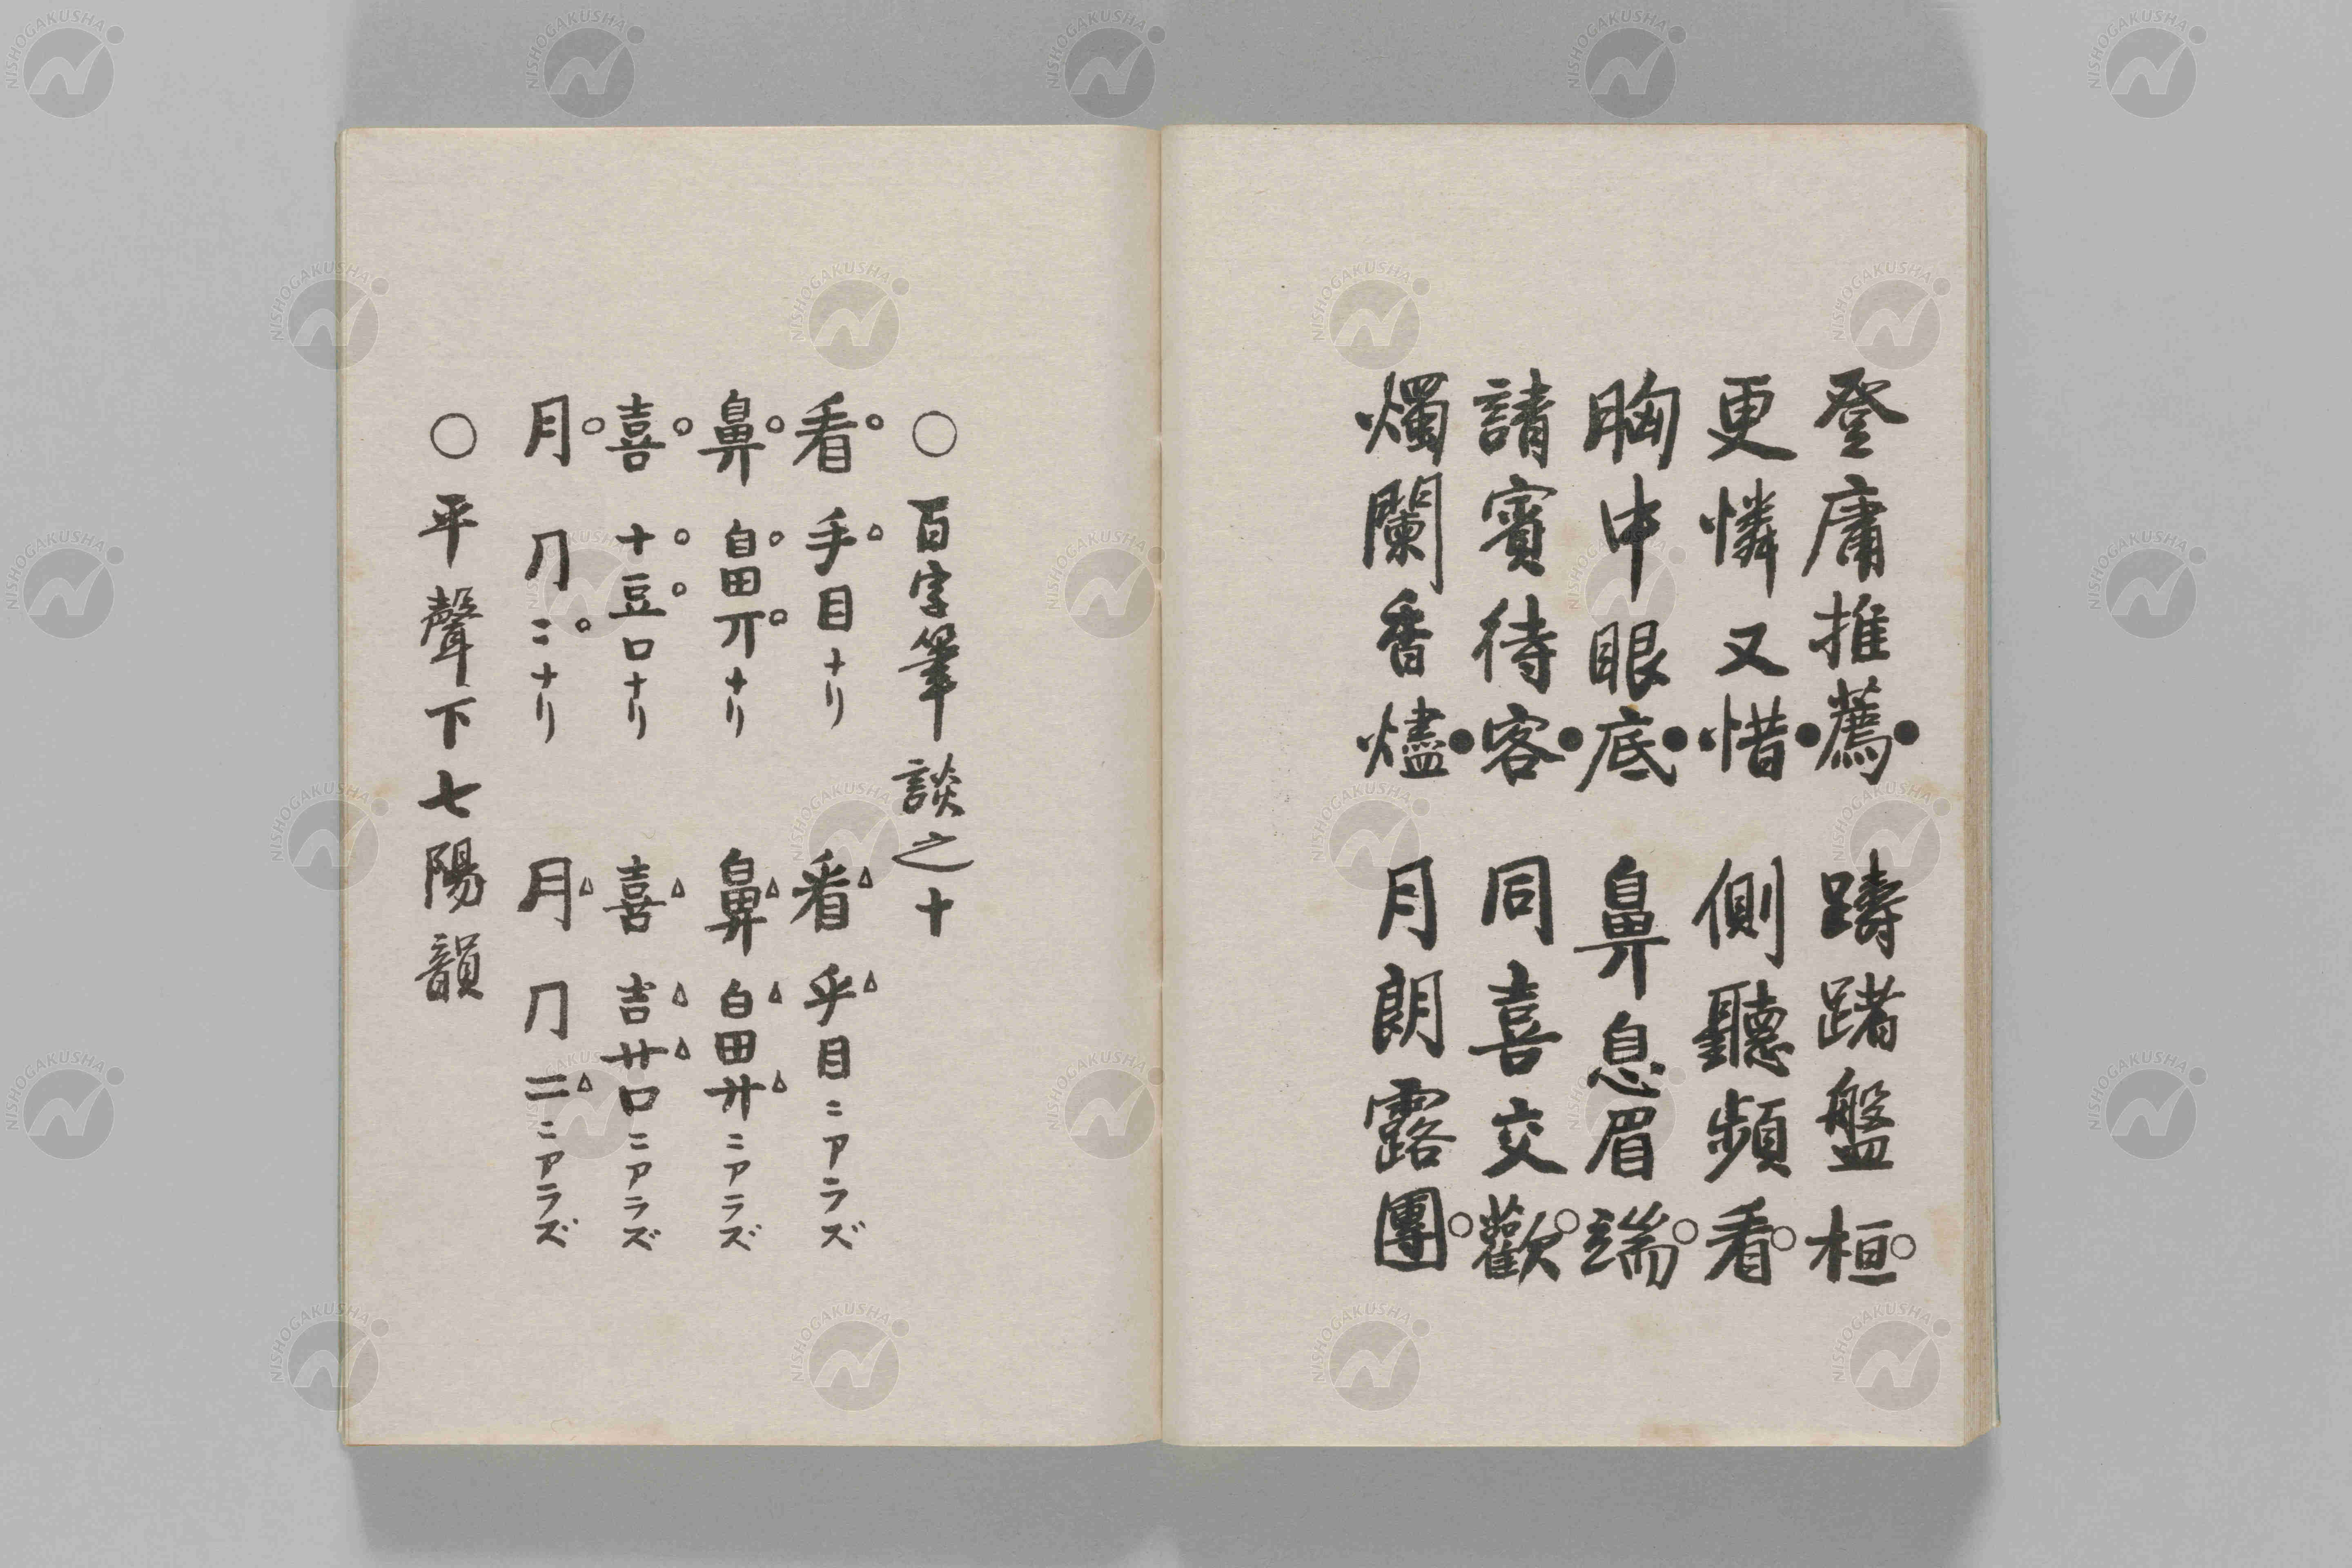 登庸推薦● 躊躇盤桓○
更憐又惜● 側聽頻看○
胸中眼底● 鼻息眉端○
請賓待客● 同喜交歡○
燭闌香燼● 月朗露團○
○百字筆談之十
看○ 手△目ナリ 看△ 乎△目ニアラズ
鼻○ 自○田丌○ナリ 鼻△ 白△田廾△ニアラズ
喜○ 十○豆○口ナリ 喜△ 吉△廿△口ニアラズ
月○ ⺆ニ○ナリ 月△ 冂二△ニアラズ
○平聲下七陽韻
NISHOGAKUSHA